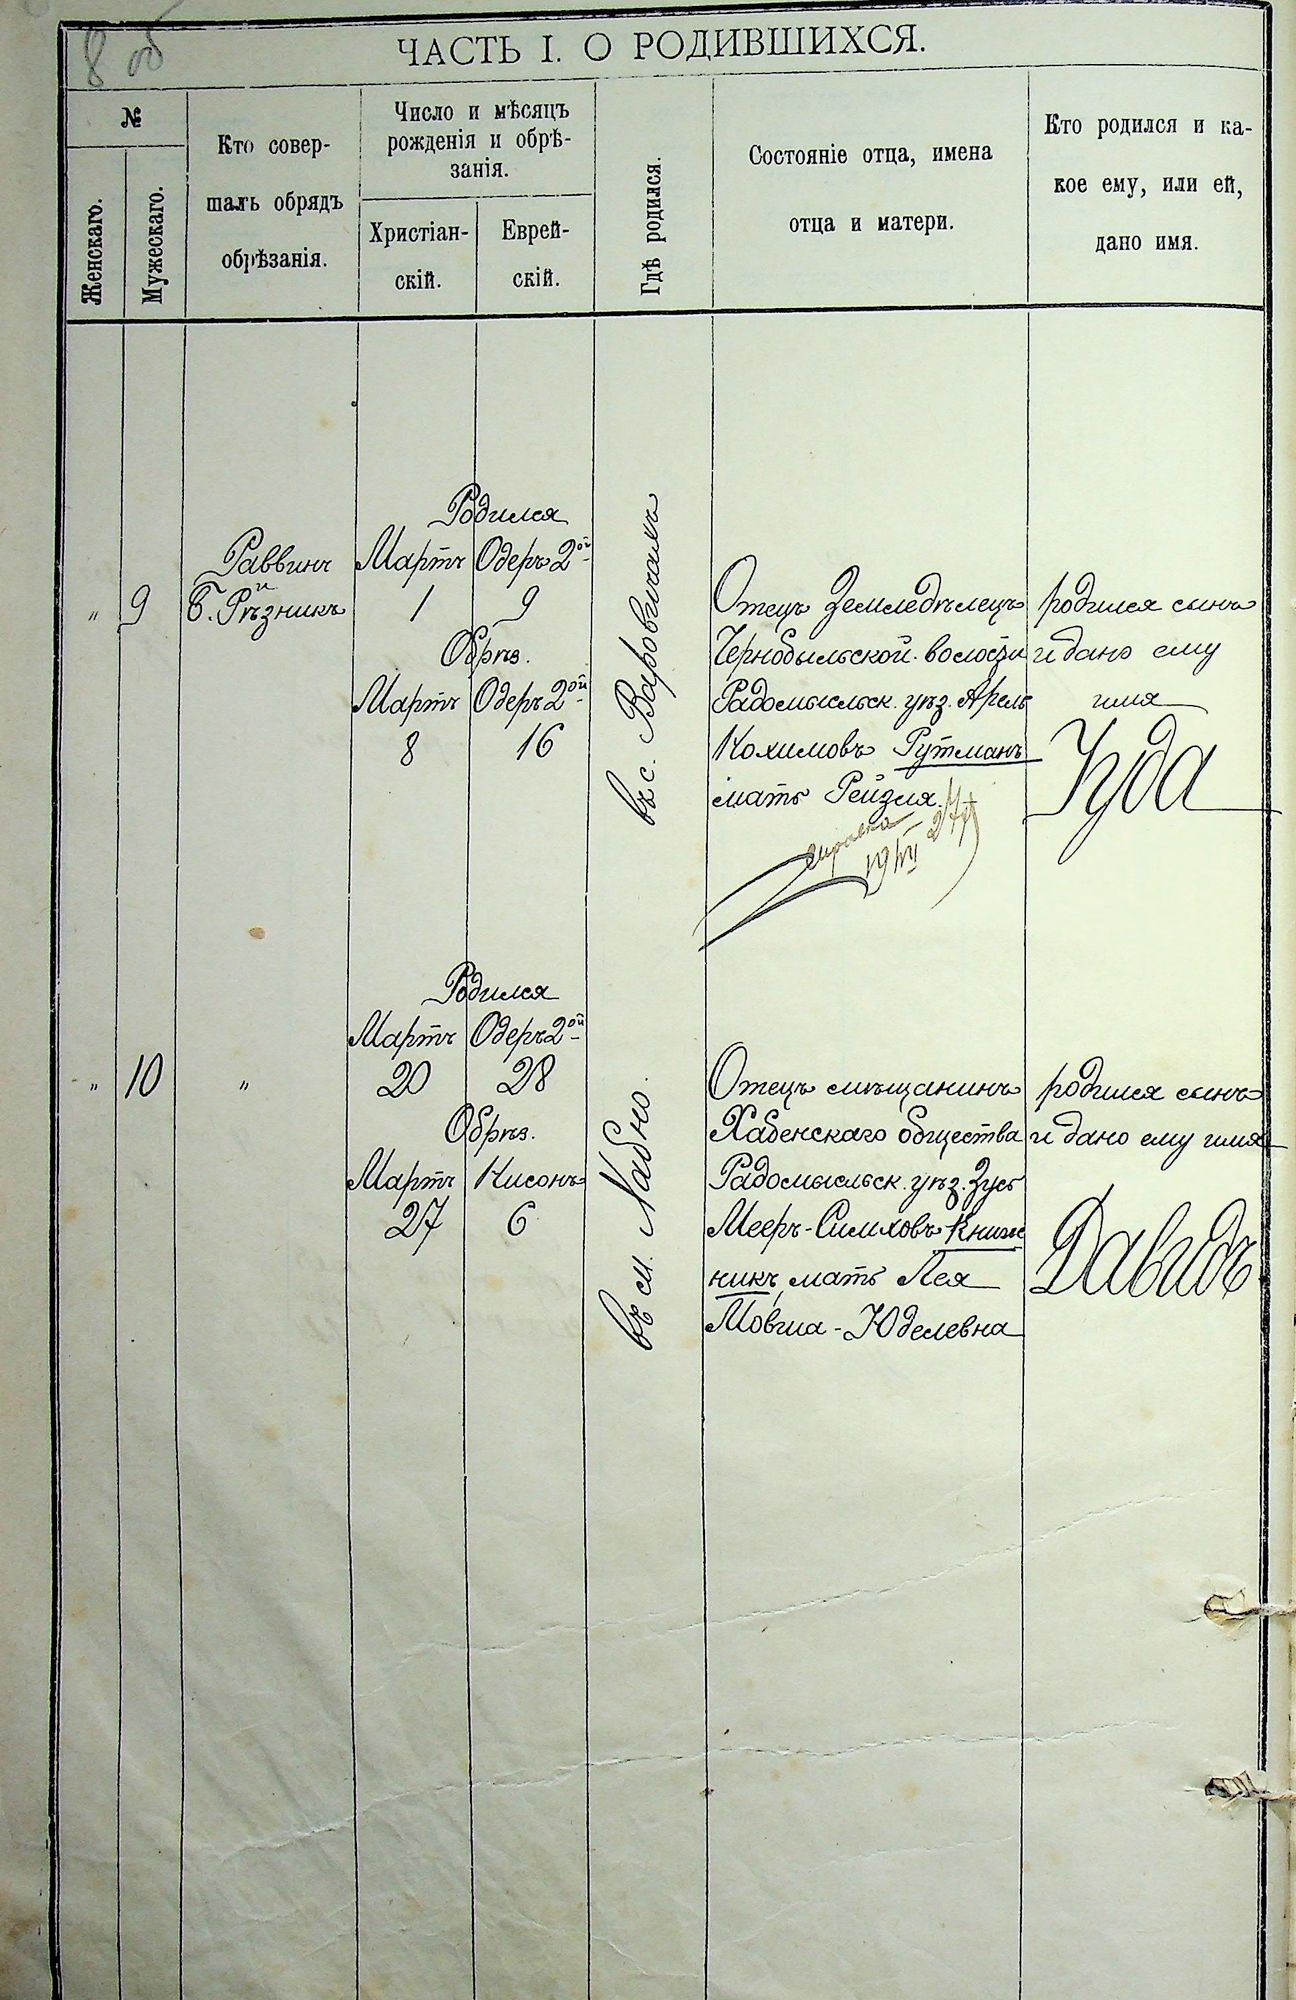 8 об
ЧАСТЬ I. О РОДИВШИХСЯ.
№
Женскаго.
Мужескаго.
Кто совер-
шалъ обрядъ
обрѣзанія.
Число и мѣсяцъ
рожденія и обрѣ-
занія.
Христіан-
скій.
Еврей-
скій.
Гдѣ родился.
Состояніе отца, имена
отца и матери.
Кто родился и ка-
кое ему, или ей,
дано имя.
„ 9
Раввинъ
и
Б. Рѣзникъ
Родился
Мартъ Одеръ 2ой
1 9
Обрѣз.
Мартъ Одеръ 2ой
8 16
въ с. Варовичахъ
Отецъ Земледѣлецъ
Чернобыльской волости
Радомысльск. уѣз. Арель
Нохимовъ Рутманъ
мать Рейзля.
справка
родился сынъ
и дано ему
имя
Іуда
„ 10
„
Родился
Мартъ Одеръ 2ой
20 28
Обрѣз.
Мартъ Нисонъ
27 6
въ м. Хабно.
Отецъ мѣщанинъ
Хабенскаго общества
Радомысльск. уѣз. Зусь
Мееръ-Симховъ Книж
никъ, мать Лея
Мовша-Юделевна
родился сынъ
и дано ему имя
Давидъ